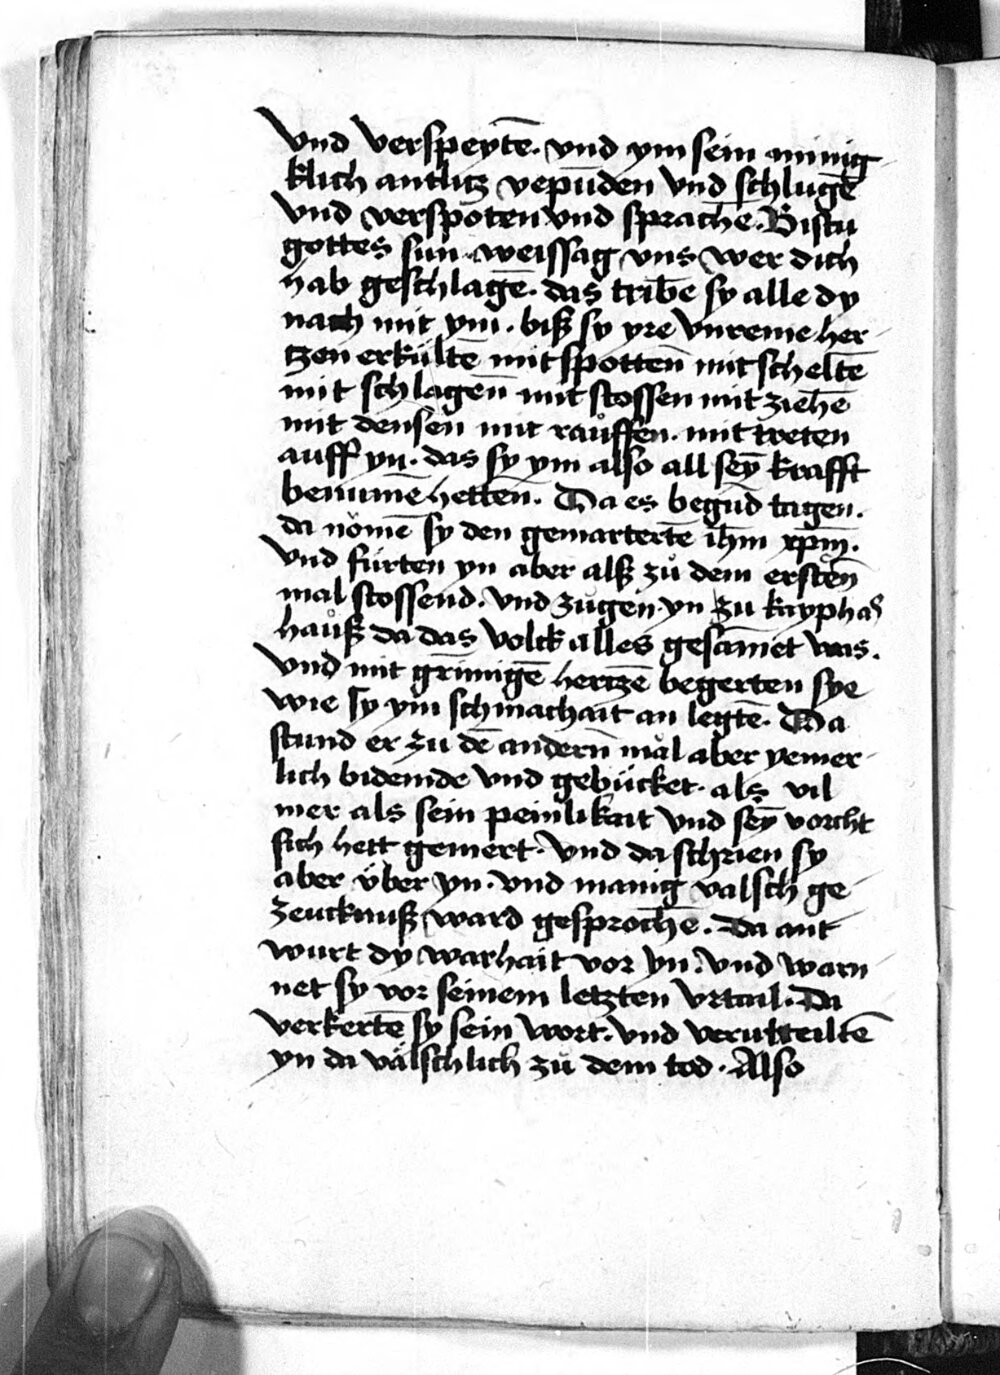 vnd verspeytē. vnd ym sein minig
klich antlitz vepūden vnd schlugē
vnd verspoten vnd sprachē. Bistu
gottes sun. weissag vns wer dich
hab geschlagē. das tribē sy alle dy
nach mit ym. biß sy yre vnreine her-
tzen erkültē mit spotten̄ mit scheltē
mit schlagen̄ mit stossen mit ziehē
mit densen mit raůffen. mit treten
auff yn. das sy ym also all seȳ krafft
benumē hetten̄. Da es begūd tagen.
da nomē sy den gemartertē ih̄m xp̄m.
vnd fürten yn aber alß zů dem ersten̄
mal stossend. vnd zugen yn zu kayphas
haůß da das volck alles gesāmet was.
vnd mit grīmigē hertzē begerten sye
wie sy ym schmachait an legtē. Da
stund er zu dē andern̄ mal aber yemer-
lich bidemde vnd gebücket. als vil
mer als sein peinlikait vnd seȳ vorcht
sich hett gemert. vnd da schrien sy
aber über yn. vnd manig valsch ge-
zeucknuß ward gesprochē. Da ant
wurt dy warhait vor yn. vnd warn
net sy vor seinem letzten vrtail. Da
verkertē sy sein wort. vnd verurteiltē
yn da välschlich zů dem tod. Also